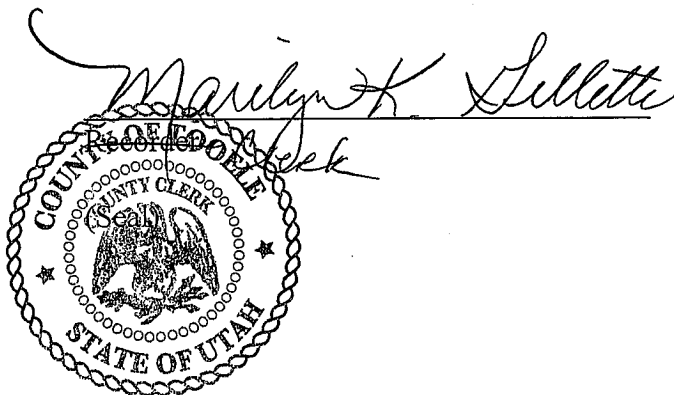 Marilyn K. Gillette
Recorder Clerk
(Seal)
COUNTY OF TOOELE
COUNTY CLERK
STATE OF UTAH